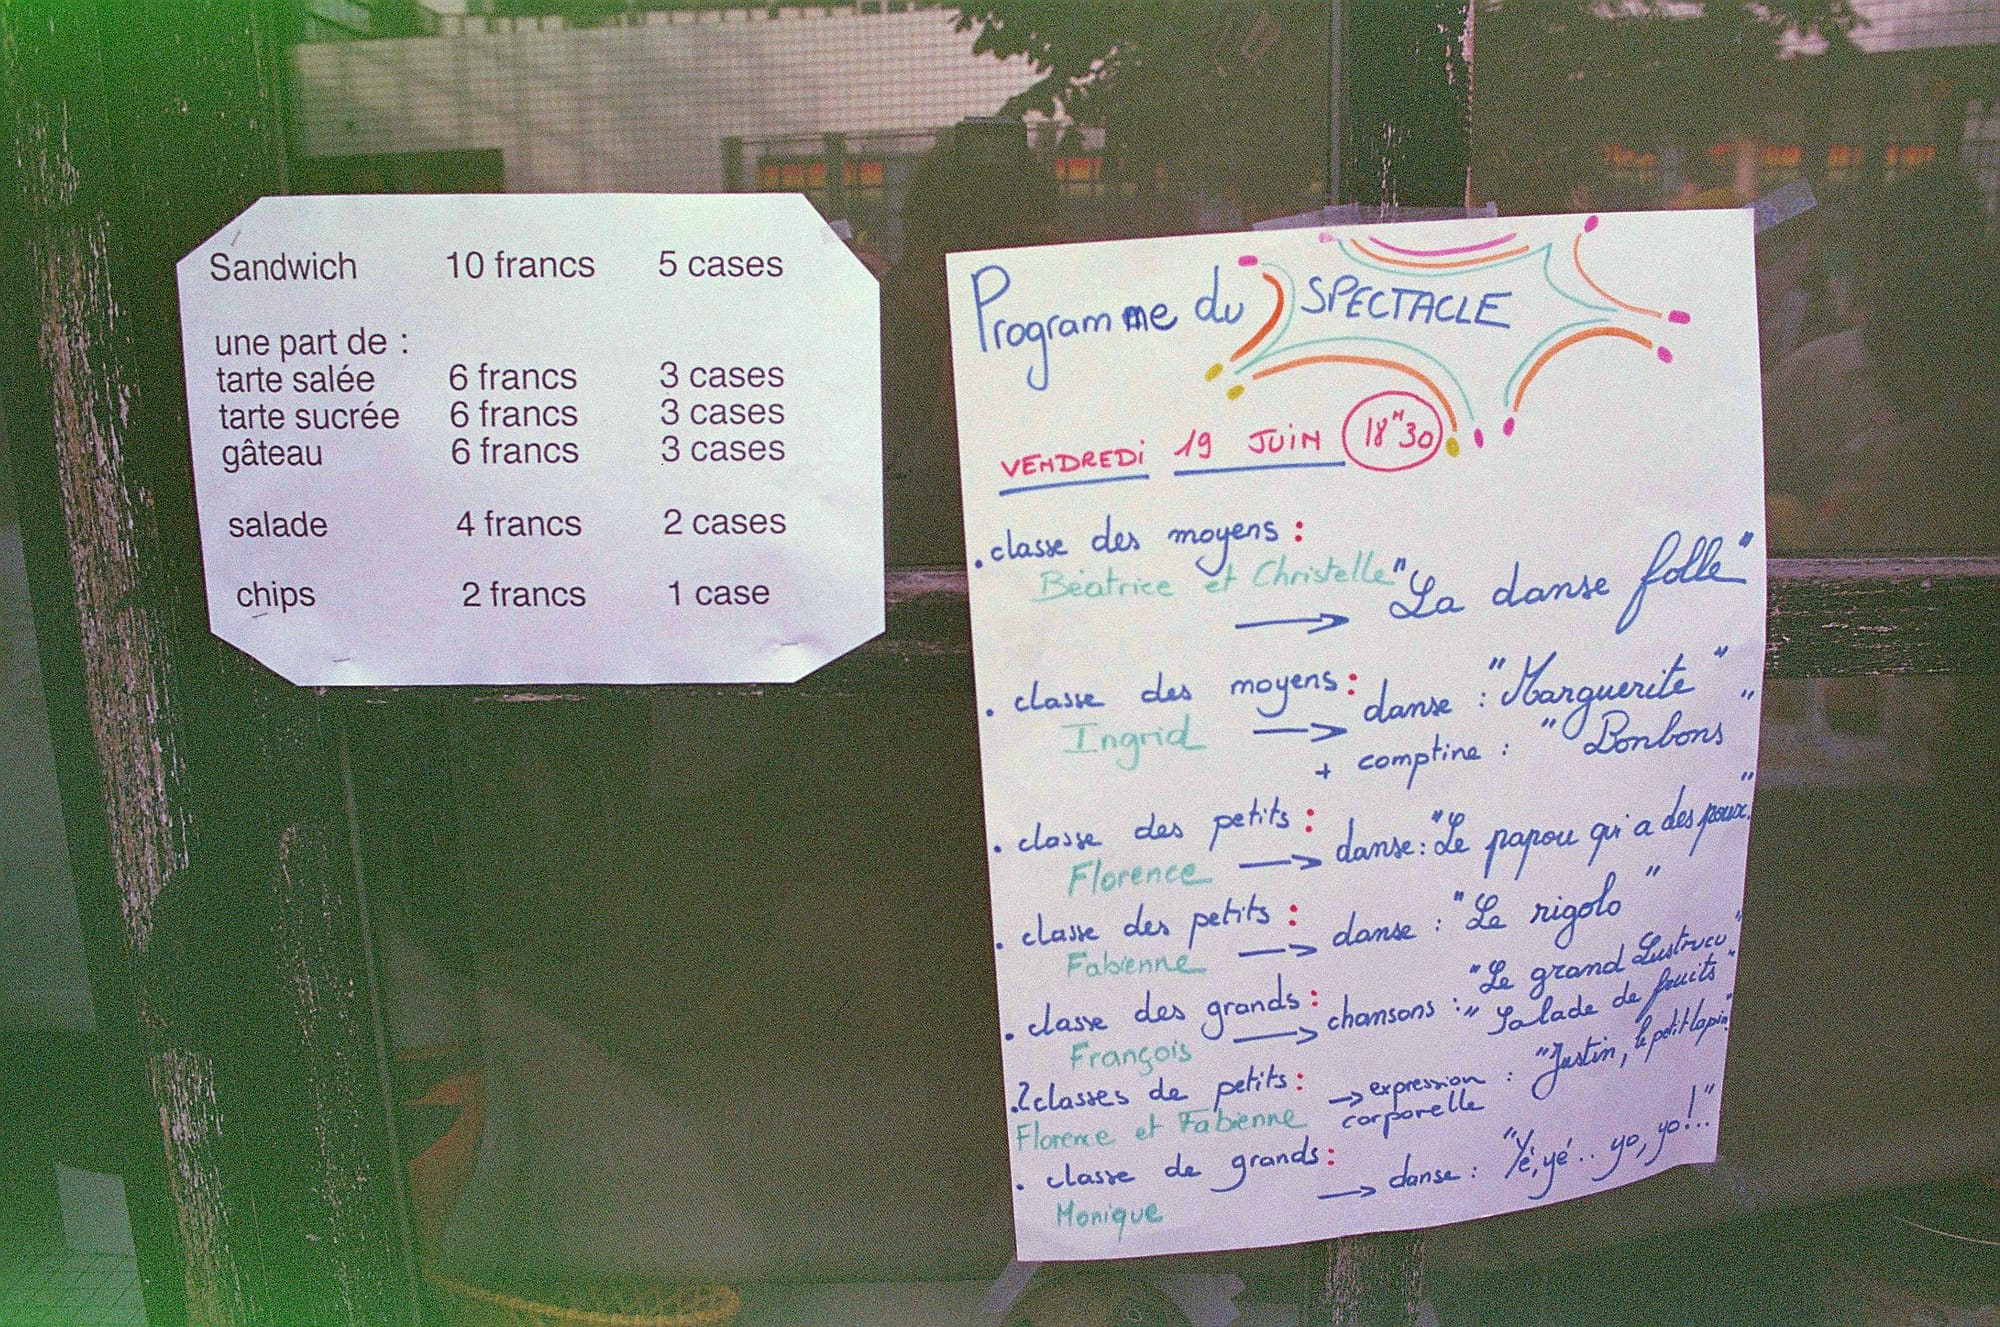 Sandwich 10 francs 5 cases
une part de :
tarte salée 6 francs 3 cases
tarte sucrée 6 francs 3 cases
gâteau 6 francs 3 cases
salade 4 francs 2 cases
chips 2 francs 1 case
Programme du SPECTACLE
VENDREDI 19 JUIN 18H30
. classe des moyens :
Béatrice et Christelle
→ "La danse folle"
. classe des moyens : danse : "Marguerite"
Ingrid →
+ comptine : "Bonbons"
. classe des petits :
Florence → danse : "Le papou qui a des poux."
. classe des petits : danse : "Le rigolo"
Fabienne →
. classe des grands : chansons : "Le grand Lustucru"
François → "Salade de fruits"
. 2 classes de petits : → expression corporelle : "Justin, le petit lapin"
Florence et Fabienne
. classe de grands :
Monique → danse : "Yé, yé .. yo, yo !.."